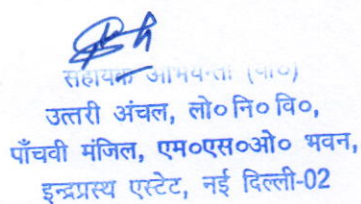 सहायक अभियन्ता (वा०)
उत्तरी अंचल, लो०नि०वि०,
पाँचवी मंजिल, एम०एस०ओ० भवन,
इन्द्रप्रस्थ एस्टेट, नई दिल्ली-02